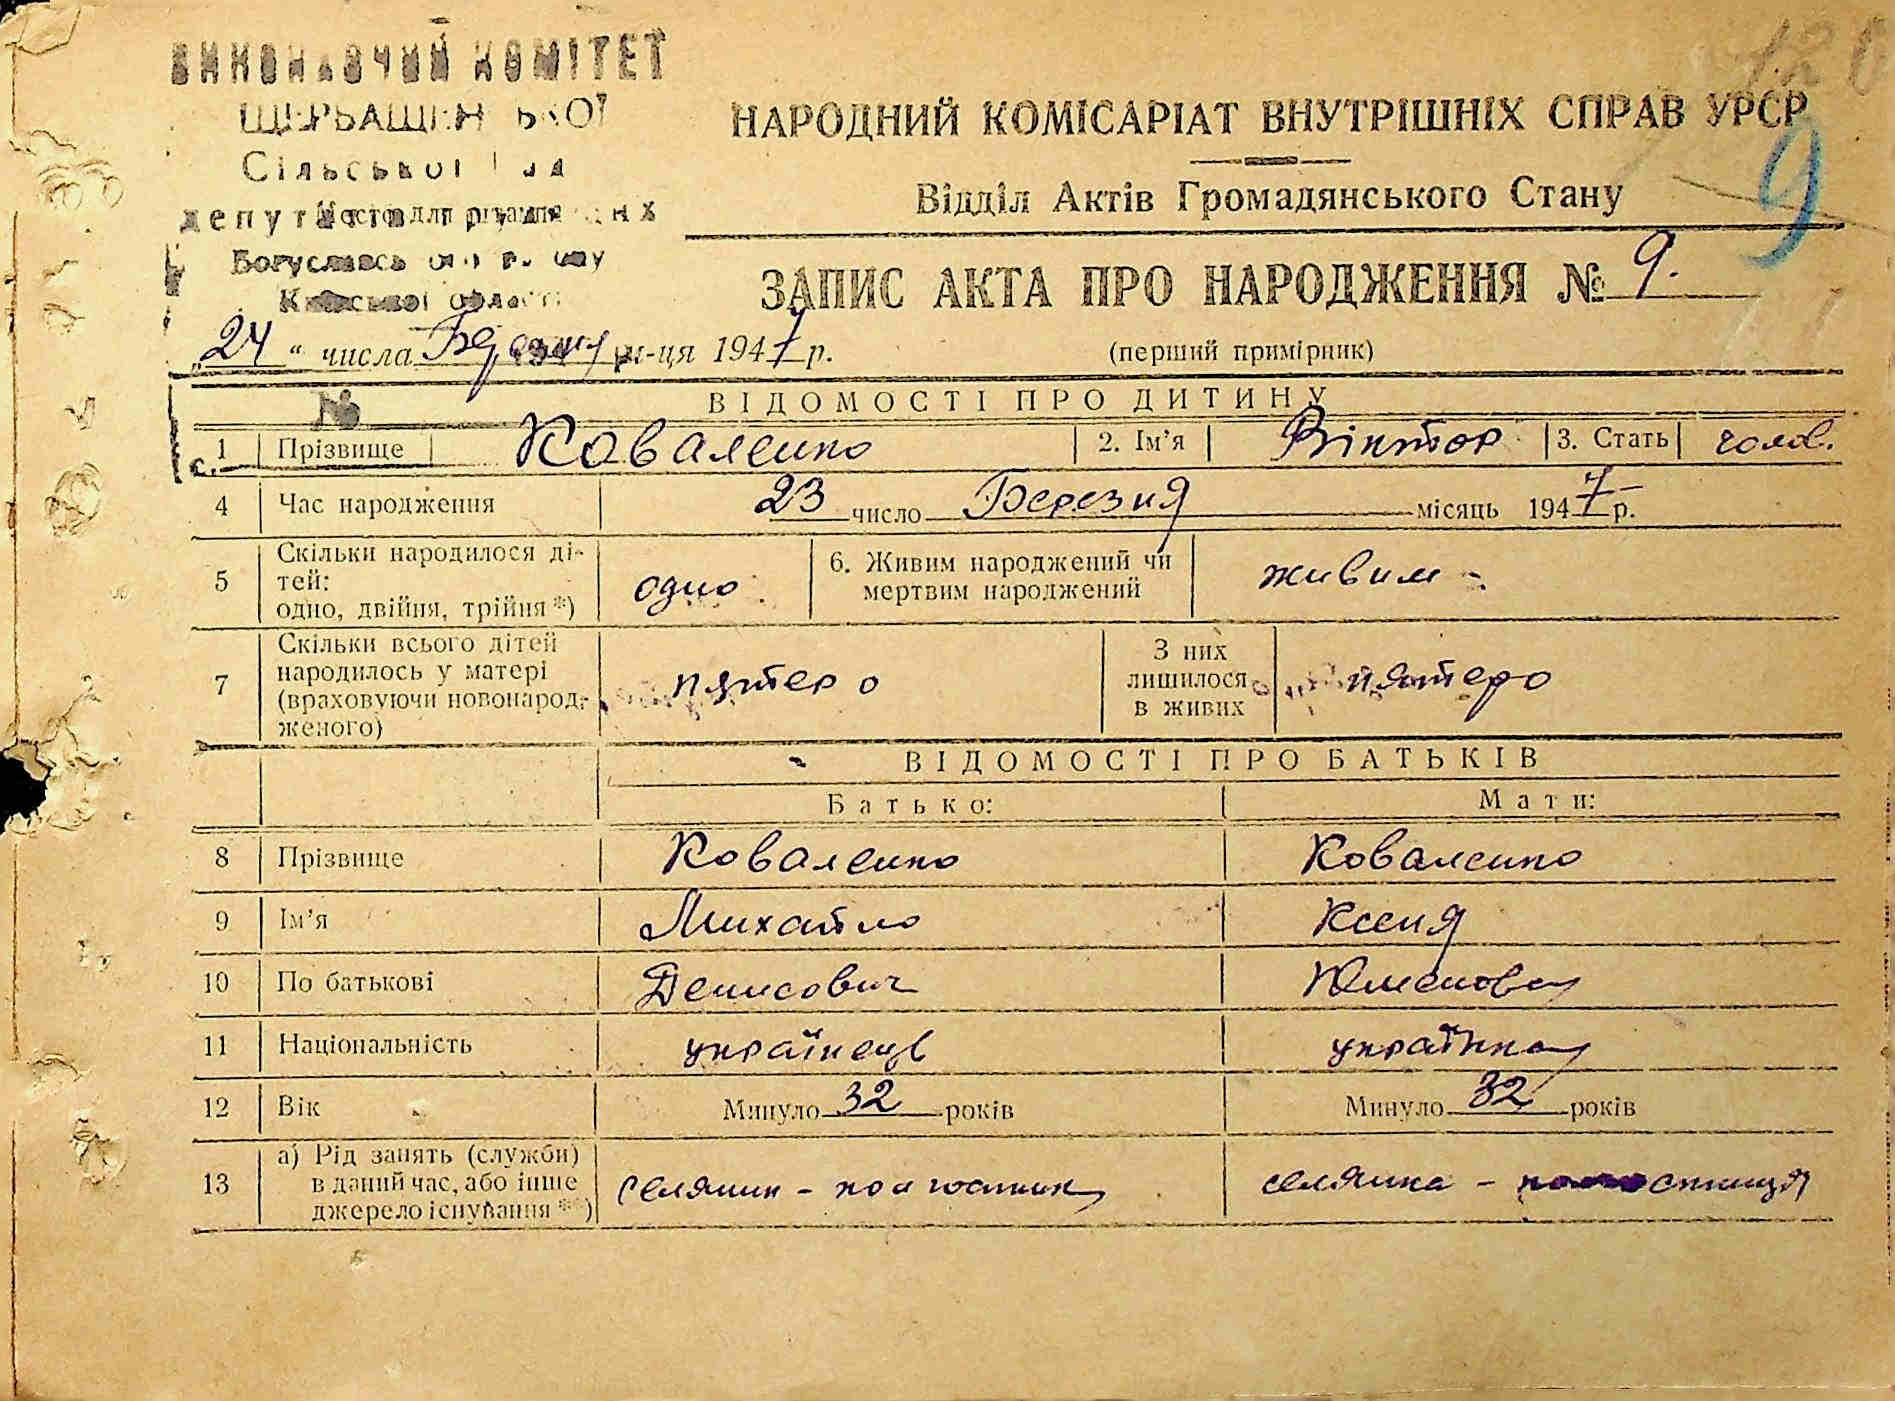 ВИКОНАВЧИЙ КОМІТЕТ
ЩЕРБАШЕНСЬКОЇ
Сільської Ради
депутатів
Богуславського району
Київської області
126
НАРОДНИЙ КОМІСАРІАТ ВНУТРІШНІХ СПРАВ УРСР
9
Відділ Актів Громадянського Стану
ЗАПИС АКТА ПРО НАРОДЖЕННЯ № 9.
„24“ числа Березня м-ця 1947 р.
(перший примірник)
№
ВІДОМОСТІ ПРО ДИТИНУ
1 Прізвище Коваленко 2. Ім’я Віктор 3. Стать чолов.
с.
4 Час народження 23 число Березня місяць 1947 р.
5 Скільки народилося ді-
тей:
одно, двійня, трійня *) одно 6. Живим народжений чи
мертвим народжений живим -
7 Скільки всього дітей
народилось у матері
(враховуючи новонарод-
женого) пятеро З них
лишилося
в живих пятеро
ВІДОМОСТІ ПРО БАТЬКІВ
Батько: Мати:
8 Прізвище Коваленко Коваленко
9 Ім’я Михайло Ксеня
10 По батькові Денисович
11 Національність українець українка
12 Вік Минуло 32 років Минуло 32 років
13 а) Рід занять (служби)
в даний час, або інше
джерело існування **) селянин - колгоспник селянка -